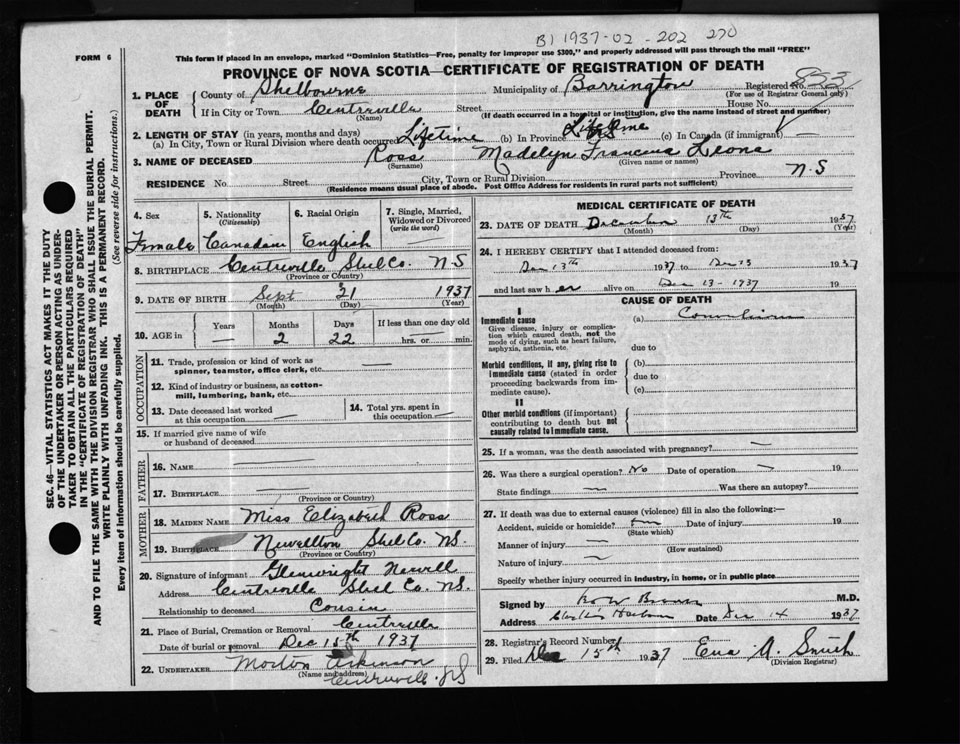 B1 1937-02-202 270
FORM 6
This form if placed in an envelope, marked "Dominion Statistics—Free, penalty for improper use $300," and properly addressed will pass through the mail "FREE"
PROVINCE OF NOVA SCOTIA—CERTIFICATE OF REGISTRATION OF DEATH
SEC. 46—VITAL STATISTICS ACT MAKES IT THE DUTY
OF THE UNDERTAKER OR PERSON ACTING AS UNDER-
TAKER TO OBTAIN ALL THE PARTICULARS REQUIRED
IN THE "CERTIFICATE OF REGISTRATION OF DEATH"
AND TO FILE THE SAME WITH THE DIVISION REGISTRAR WHO SHALL ISSUE THE BURIAL PERMIT.
WRITE PLAINLY WITH UNFADING INK. THIS IS A PERMANENT RECORD.
Every item of information should be carefully supplied. (See reverse side for instructions.)
1. PLACE OF DEATH County of Shelbourne Municipality of Barrington Registered No. 853
(For use of Registrar General only)
If in City or Town Centreville Street House No.
(Name) (If death occurred in a hospital or institution, give the name instead of street and number)
2. LENGTH OF STAY (in years, months and days)
(a) In City, Town or Rural Division where death occurred Lifetime (b) In Province Lifetime (c) In Canada (if immigrant)
3. NAME OF DECEASED Ross Madelyn Francina Leona
(Surname) (Given name or names)
RESIDENCE No. Street City, Town or Rural Division Province N.S
(Residence means usual place of abode. Post Office Address for residents in rural parts not sufficient)
4. Sex 5. Nationality (Citizenship) 6. Racial Origin 7. Single, Married, Widowed or Divorced (write the word)
Female Canadian English —
8. BIRTHPLACE Centreville Shel Co. N S
(Province or Country)
9. DATE OF BIRTH Sept 21 1937
(Month) (Day) (Year)
10. AGE in Years Months Days If less than one day old
— 2 22 hrs. or min.
OCCUPATION
11. Trade, profession or kind of work as spinner, teamster, office clerk, etc. —
12. Kind of industry or business, as cotton-mill, lumbering, bank, etc.
13. Date deceased last worked at this occupation — 14. Total yrs. spent in this occupation —
15. If married give name of wife or husband of deceased
FATHER
16. NAME —
17. BIRTHPLACE —
(Province or Country)
MOTHER
18. MAIDEN NAME Miss Elizabeth Ross
19. BIRTHPLACE Newellton Shel Co. NS.
(Province or Country)
20. Signature of informant Glenwright Newell
Address Centreville Shel Co. NS.
Relationship to deceased Cousin
21. Place of Burial, Cremation or Removal Centreville
Date of burial or removal Dec 15th 1937
22. UNDERTAKER Morton Atkinson
(Name and address) Centreville. NS
MEDICAL CERTIFICATE OF DEATH
23. DATE OF DEATH December 13th 1937
(Month) (Day) (Year)
24. I HEREBY CERTIFY that I attended deceased from:
Dec 13th 1937 to Dec 13 1937
and last saw her alive on Dec 13 - 1937 19
CAUSE OF DEATH
I
Immediate cause (a) Convulsions
Give disease, injury or complication which caused death, not the mode of dying, such as heart failure, asphyxia, asthenia, etc.
due to
Morbid conditions, if any, giving rise to Immediate cause (stated in order proceeding backwards from immediate cause).
(b)
due to
(c)
II
Other morbid conditions (if important) contributing to death but not causally related to Immediate cause.
25. If a woman, was the death associated with pregnancy? —
26. Was there a surgical operation? No Date of operation — 19
State findings — Was there an autopsy?
27. If death was due to external causes (violence) fill in also the following:—
Accident, suicide or homicide? Date of injury 19
(State which)
Manner of injury —
(How sustained)
Nature of injury —
Specify whether injury occurred in industry, in home, or in public place
Signed by M.D.
Address Date Dec 14 1937
28. Registrar's Record Number
29. Filed Dec 15th 1937 Ena A. Smith
(Division Registrar)